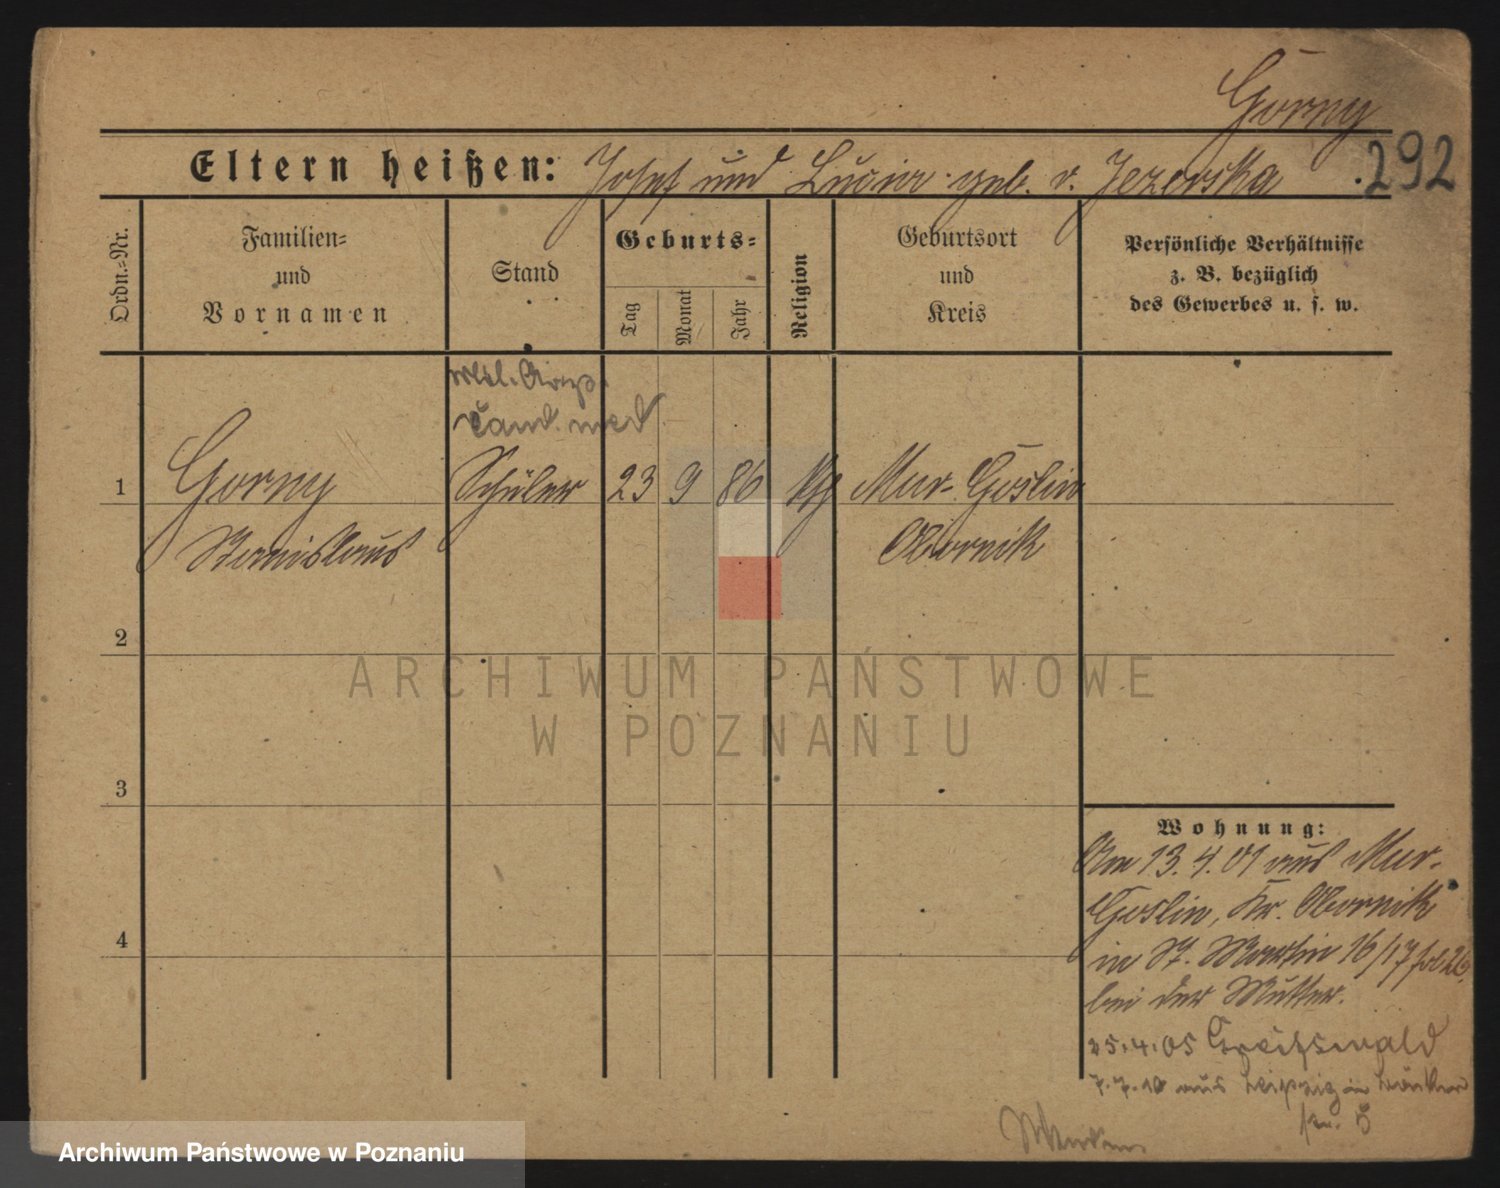 Gorny
292
Eltern heißen: Josef und Lucie geb. v. Jezerska
Ordn.-Nr.
Familien- und Vornamen
Stand
Geburts-
Tag
Monat
Jahr
Religion
Geburtsort und Kreis
Persönliche Verhältnisse
z. B. bezüglich
des Gewerbes u. s. w.
Cand. med.
1 Gorny Schüler 23 9 86 kth Mur-Goslin
Stanislaus Obornik
2
3
4
Wohnung:
Am 13.4.01 aus Mur-
Goslin, Kr. Obornik
in St. Martin 16/17 fol. 26
bei der Mutter.
25.4.05 Greifswald
7.7.10 aus Leipzig in
5
ARCHIWUM PAŃSTWOWE
W POZNANIU
Archiwum Państwowe w Poznaniu